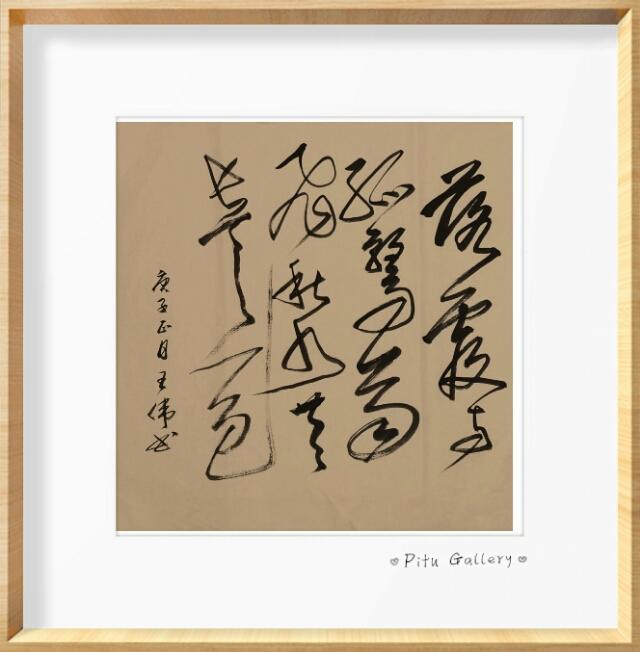 落霞与
孤鹜齐
飞秋水共
长天一色
庚子正月王伟书
Pitu Gallery